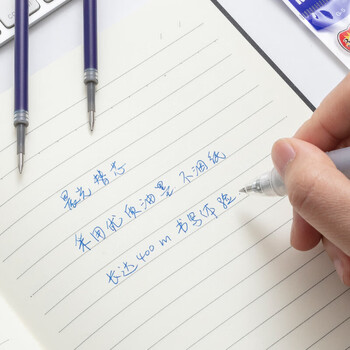 晨光精志
采用优质油墨 不洇纸
长达400m书写体验